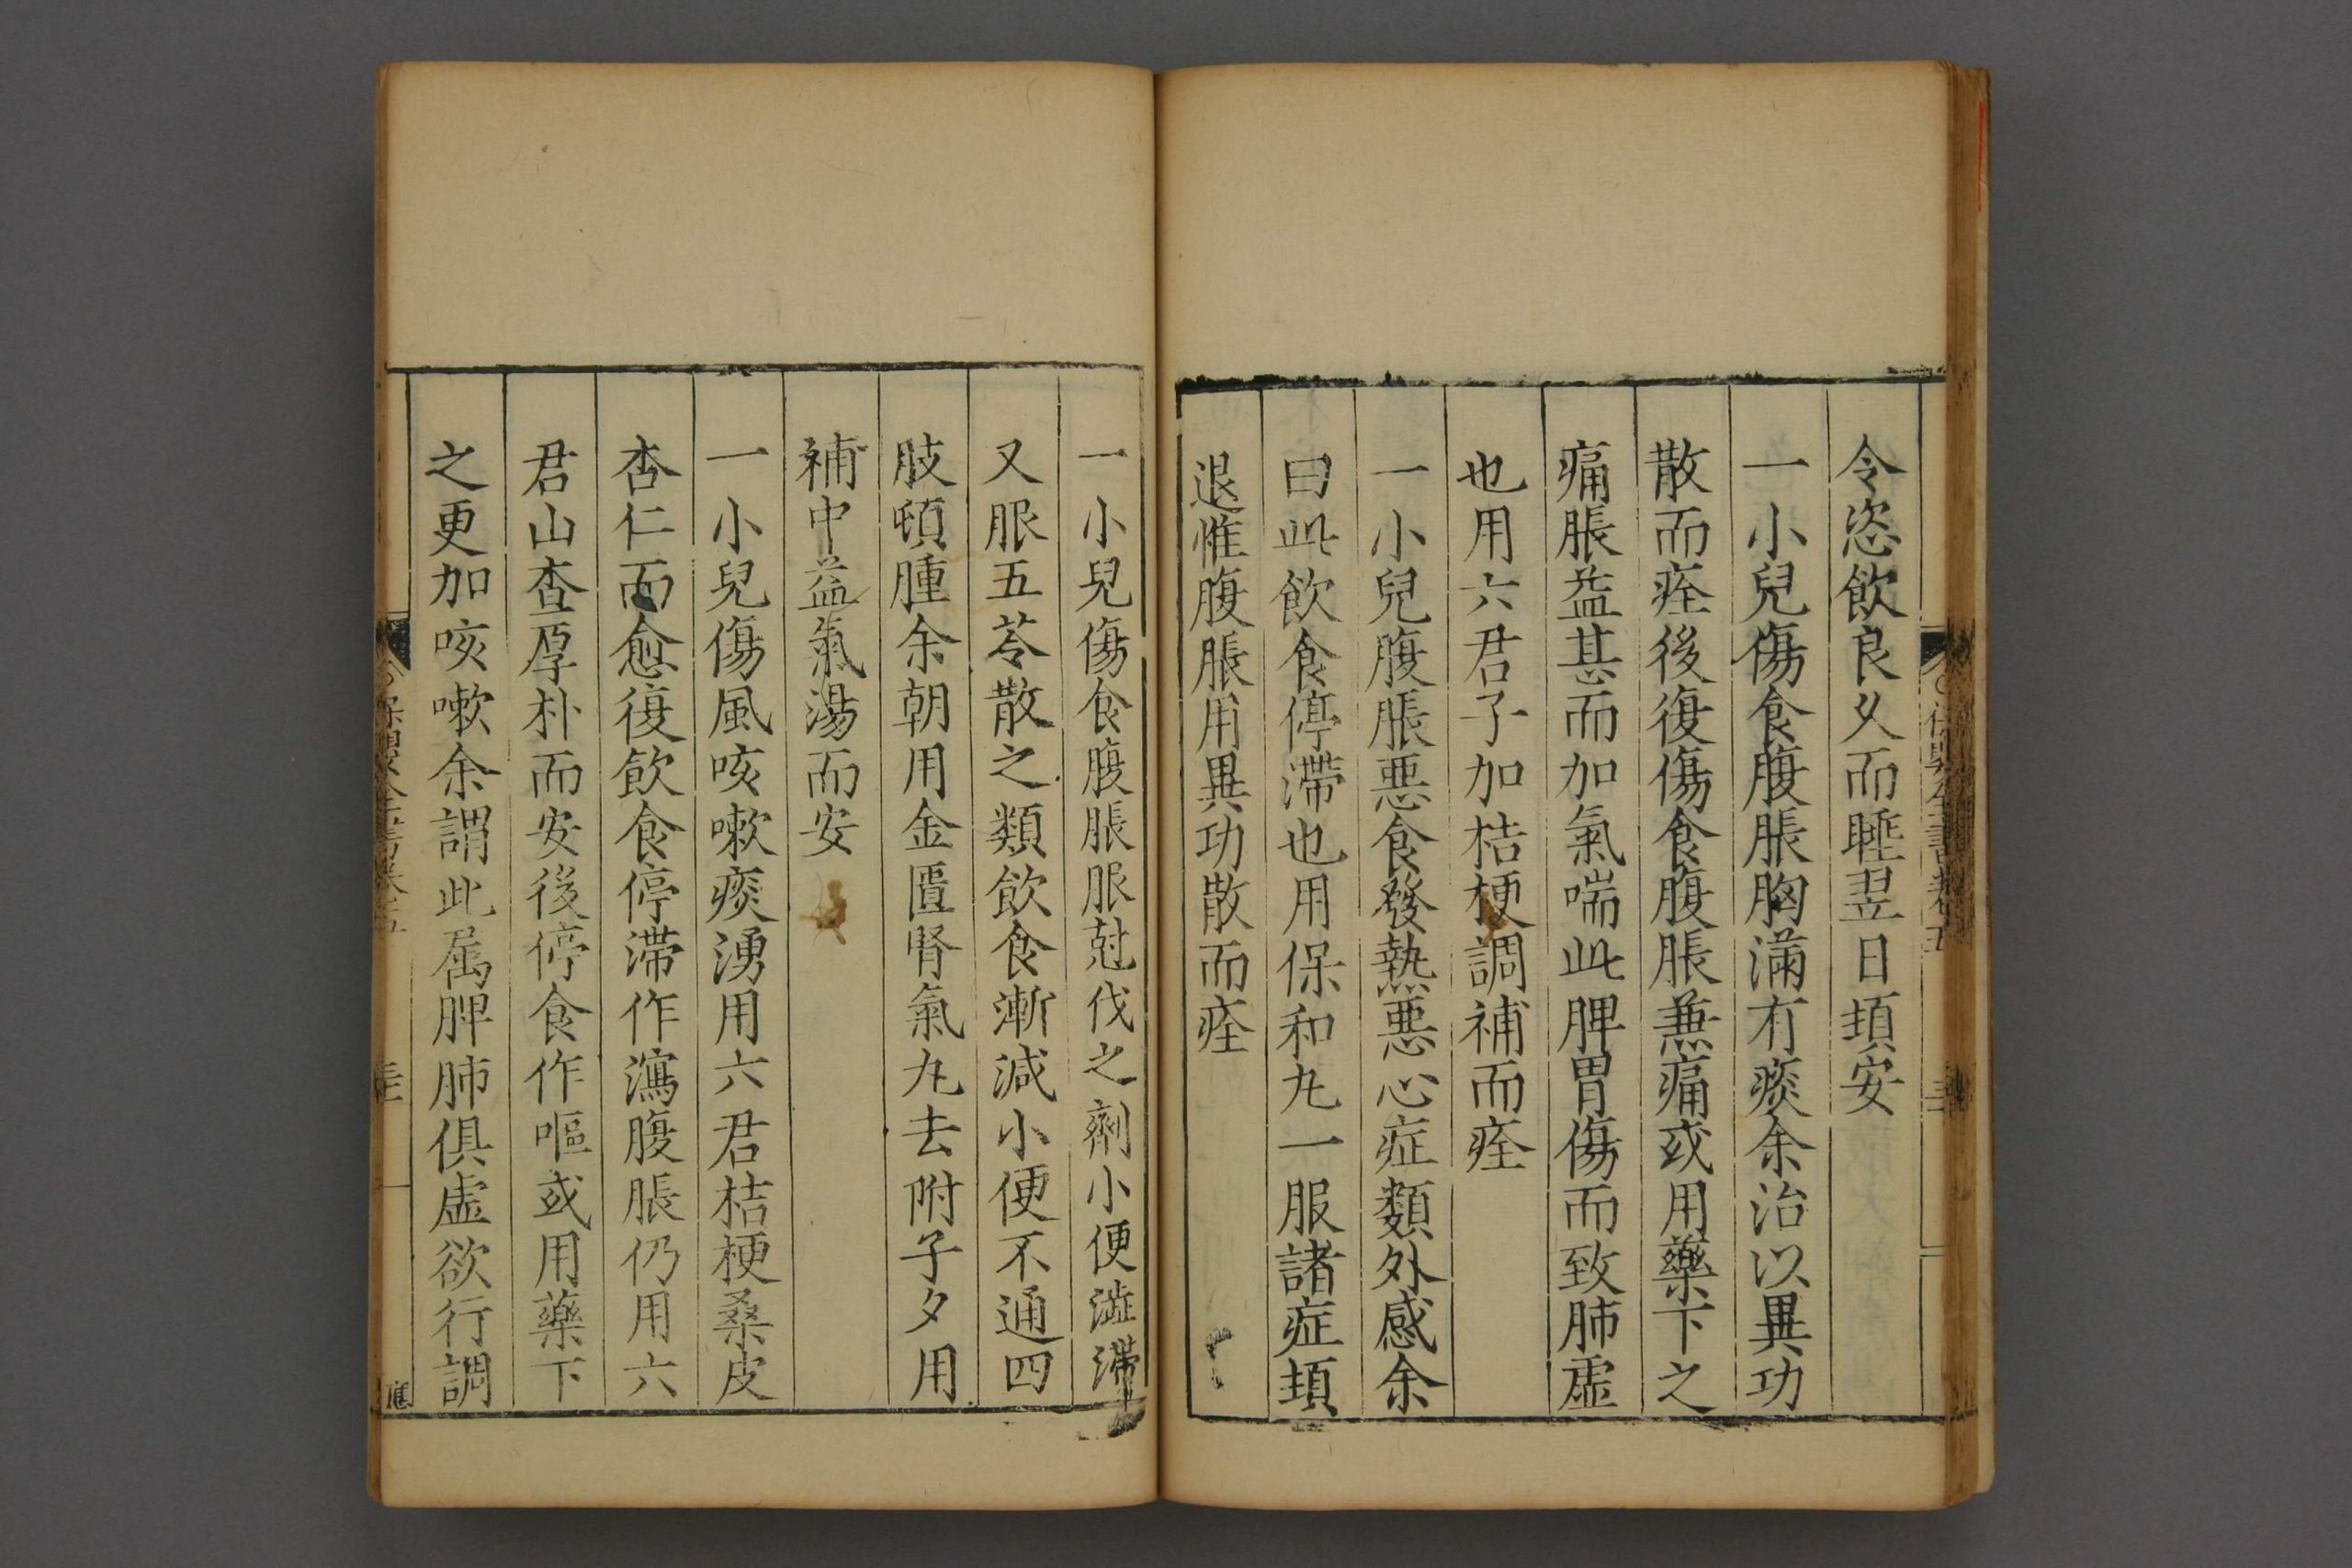 令恣飲良乆而睡翌日頓安
一小兒傷食腹脹胸滿有痰余治以異功
散而痊後復傷食腹脹兼痛或用藥下之
痛脹益甚而加氣喘此脾胃傷而致肺虛
也用六君子加桔梗調補而痊
一小兒腹脹惡食發熱惡心症類外感余
曰此飲食停滯也用保和丸一服諸症頓
退惟腹脹用異功散而痊
一小兒傷食腹脹服尅伐之劑小便澁滯
又服五苓散之類飲食漸減小便不通四
肢頓腫余朝用金匱腎氣丸去附子夕用
補中益氣湯而安
一小兒傷風咳嗽痰湧用六君桔梗桑皮
杏仁而愈復飲食停滯作瀉腹脹仍用六
君山查厚朴而安後停食作嘔或用藥下
之更加咳嗽余謂此屬脾肺俱虛欲行調